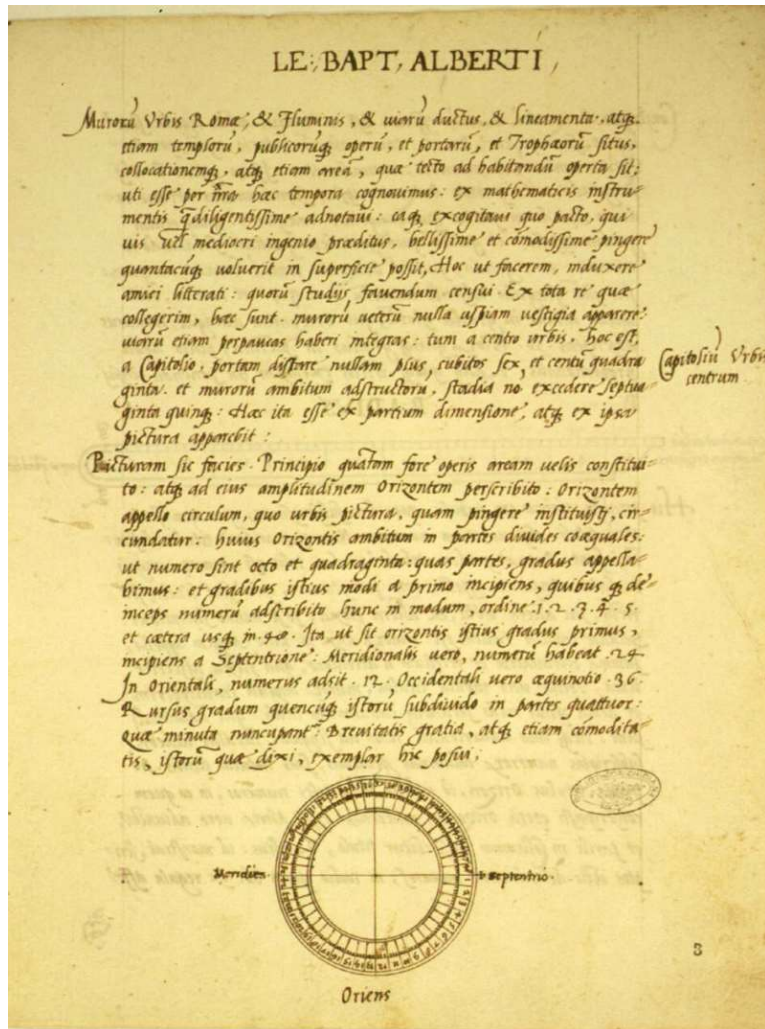 LE: BAPT, ALBERTI,
Murorū Vrbis Romæ, & Fluminis, & uiarū ductus, & lineamenta, atq;
etiam templorū, publicorūq; operū, et portarū, et Trophæorū situs,
collocationemq;, atq; etiam areā, quæ tecto ad habitandū operta sit;
uti esse per n̄ra hæc tempora cognouimus: ex mathematicis instru-
mentis q̄diligentissime adnotaui: eaq; excogitaui quo pacto, qui
uis uel mediocri ingenio præditus, bellissime et cōmodissime pingere
quantacūq; uoluerit in superficie possit, Hoc ut facerem, induxere
amici litterati: quorū studijs fauendum censui. Ex tota re quæ
collegerim, hæc sunt. murorū ueterū nulla uspiam uestigia apparere:
uiarū etiam perpaucas haberi integras: tum a centro urbis, hoc est,
a Capitolio, portam distare nullam plus, cubitos sex, et centū quadra
ginta. et murorū ambitum adstructorū, stadia no excedere septua-
ginta quinq;: Hæc ita esse ex partium dimensione, atq; ex ipsa
pictura apparebit:
Capitoliū Vrbis
centrum
Picturam sic facies. Principio quātam fore operis aream uelis constitui-
to: atq; ad eius amplitudinem Orizontem perscribito: Orizontem
appello circulum, quo urbis pictura, quam pingere instituisti, cir-
cundatur: huius Orizontis ambitum in partes diuides coæquales:
ut numero sint octo et quadraginta: quas partes, gradus appella-
bimus: et gradibus istius modi a primo incipiens, quibus q; de-
inceps numerū adscribito hunc in modum, ordine .1. 2. 3. 4. 5.
et cætera usq; in .48. Ita ut sit orizontis istius gradus primus,
incipiens a Septentrione: Meridionalis uero, numerū habeat .24
In Orientali, numerus adsit .12. Occidentali uero æquinotio .36.
Rursus gradum quencūq; istorū subdiuido in partes quattuor:
Quæ minuta nuncupant: Breuitatis gratia, atq; etiam cōmodita-
tis, istorū quæ dixi, exemplar hic posui;
Meridies.
septentrio.
Oriens
8